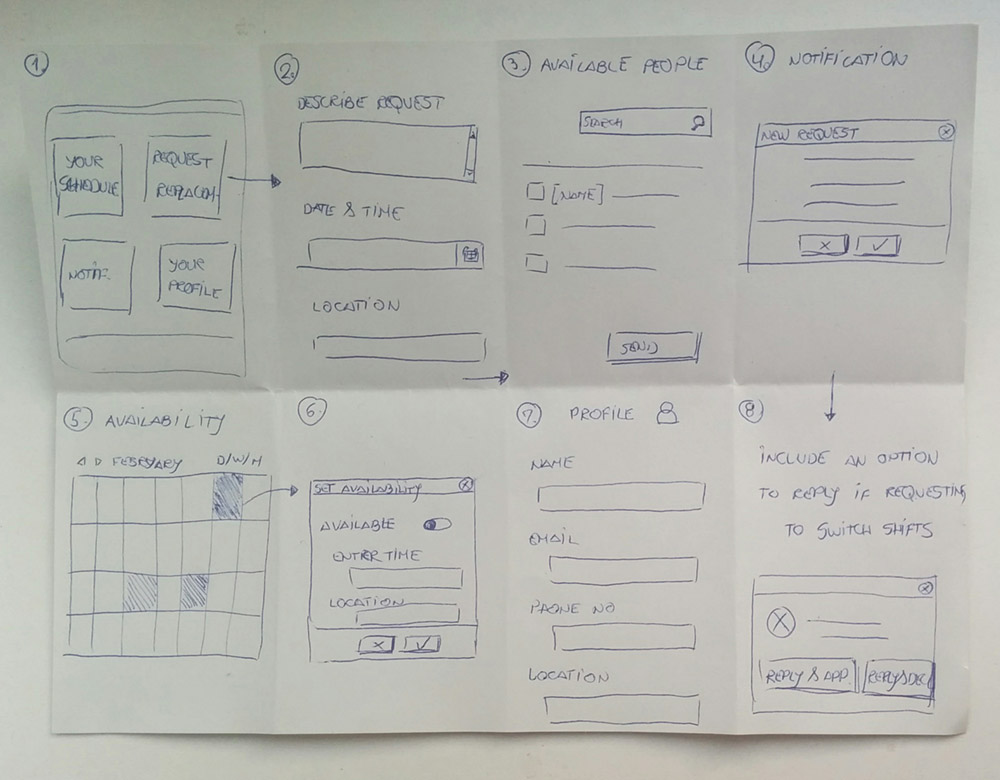 1.
YOUR
SCHEDULE
REQUEST
REPLACM.
NOTIF.
YOUR
PROFILE
2.
DESCRIBE REQUEST
DATE & TIME
LOCATION
3. AVAILABLE PEOPLE
SEARCH
[NAME]
SEND
4. NOTIFICATION
NEW REQUEST
X
✓
5. AVAILABILITY
FEBRYARY D/W/M
6.
SET AVAILABILITY
AVAILABLE
ENTER TIME
LOCATION
X
✓
7. PROFILE
NAME
EMAIL
PHONE NO
LOCATION
8.
INCLUDE AN OPTION
TO REPLY IF REQUESTING
TO SWITCH SHIFTS
REPLY & APP.
REPLY & DECL